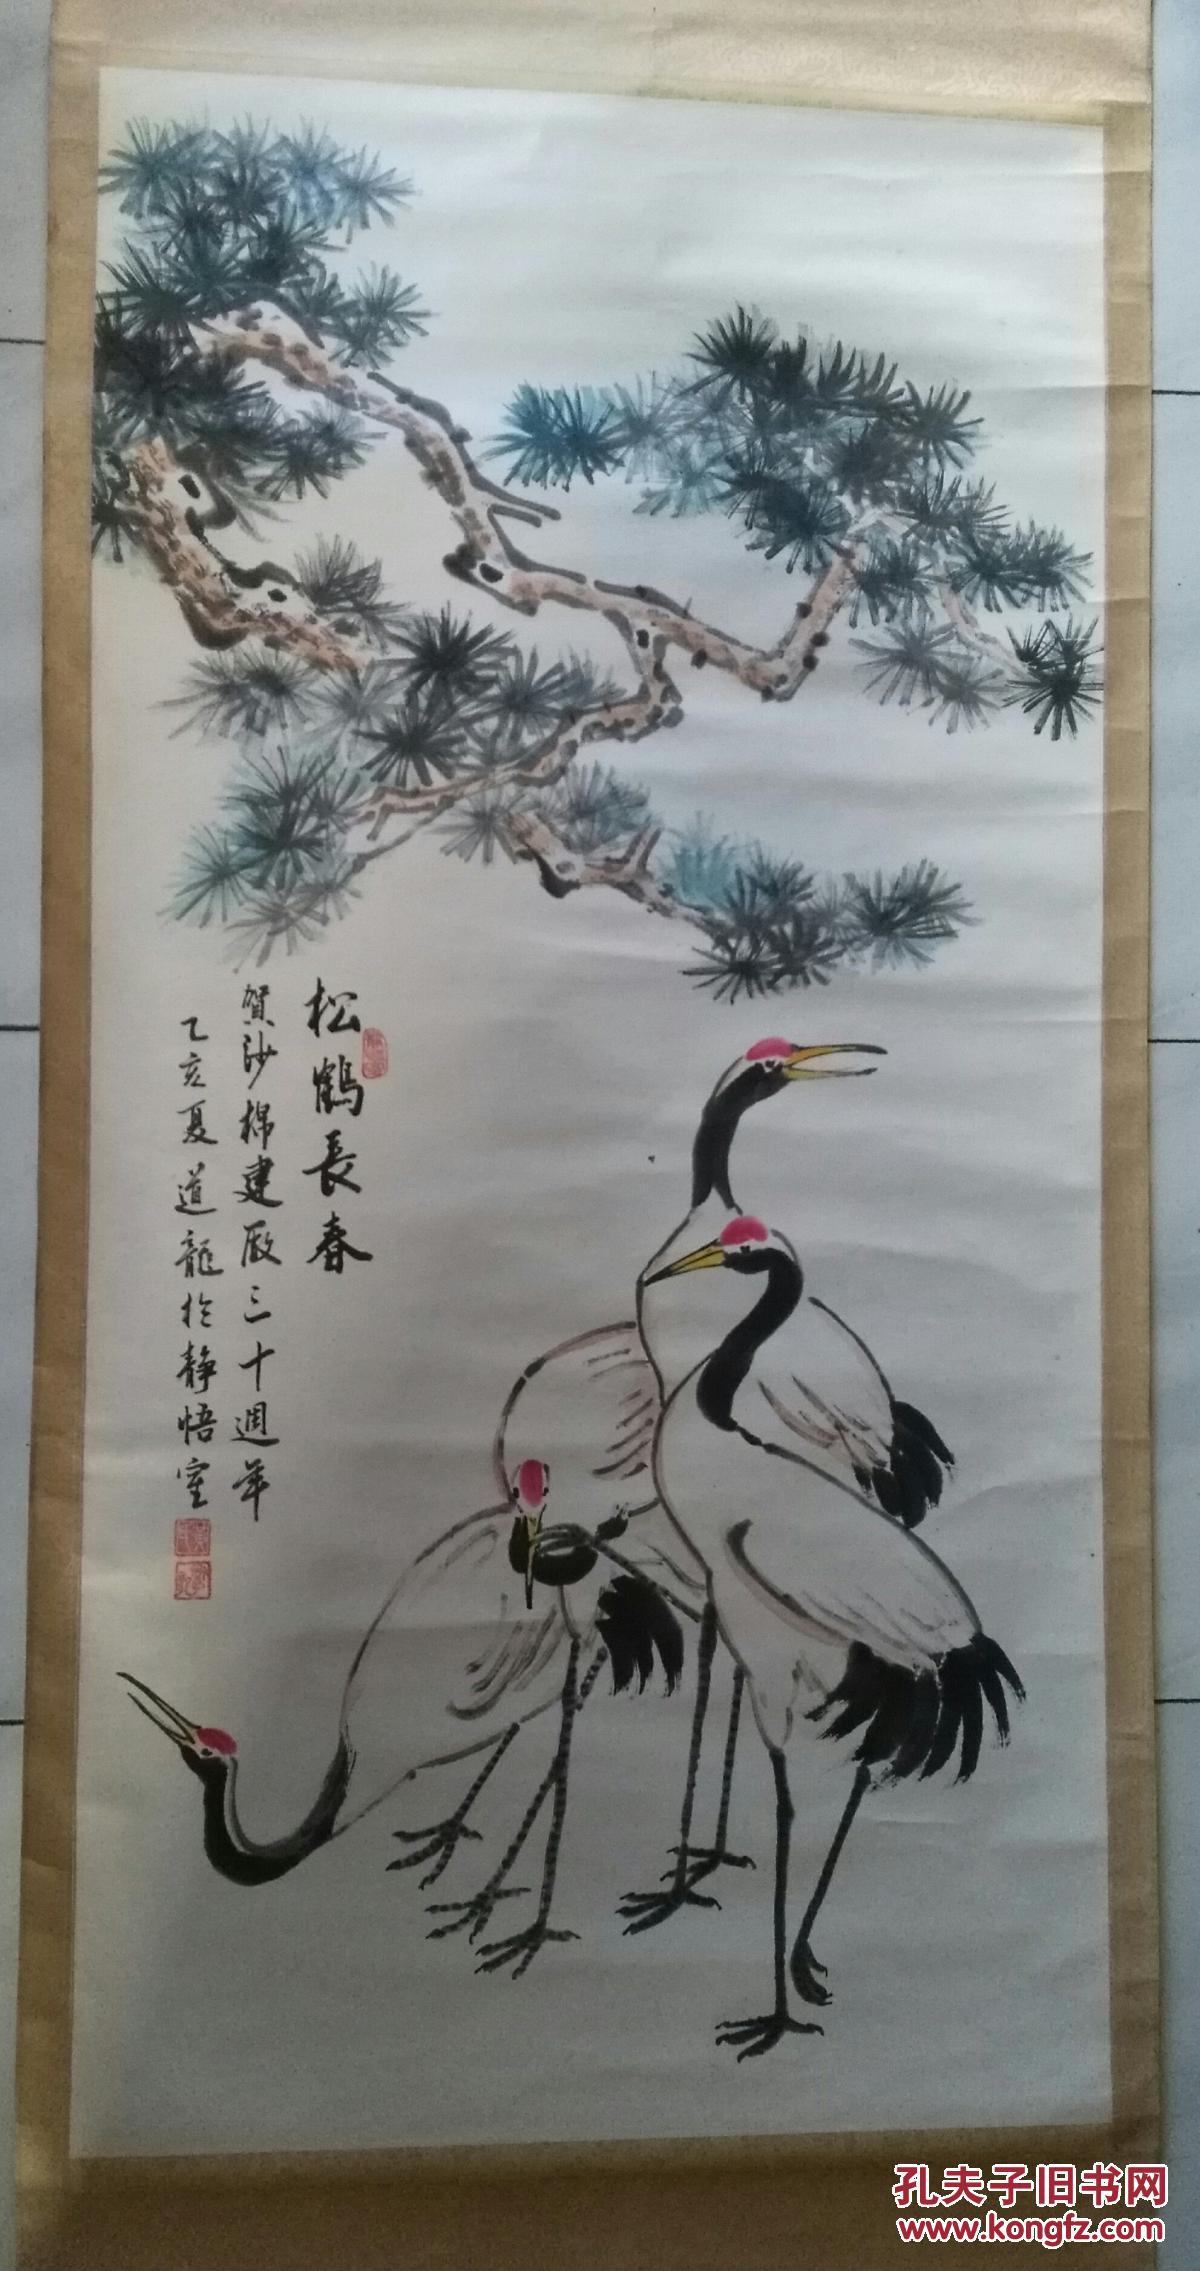 松鶴長春
賀沙棉建厰三十週年
乙亥夏道龍於静悟室
孔夫子旧书网
www.kongfz.com